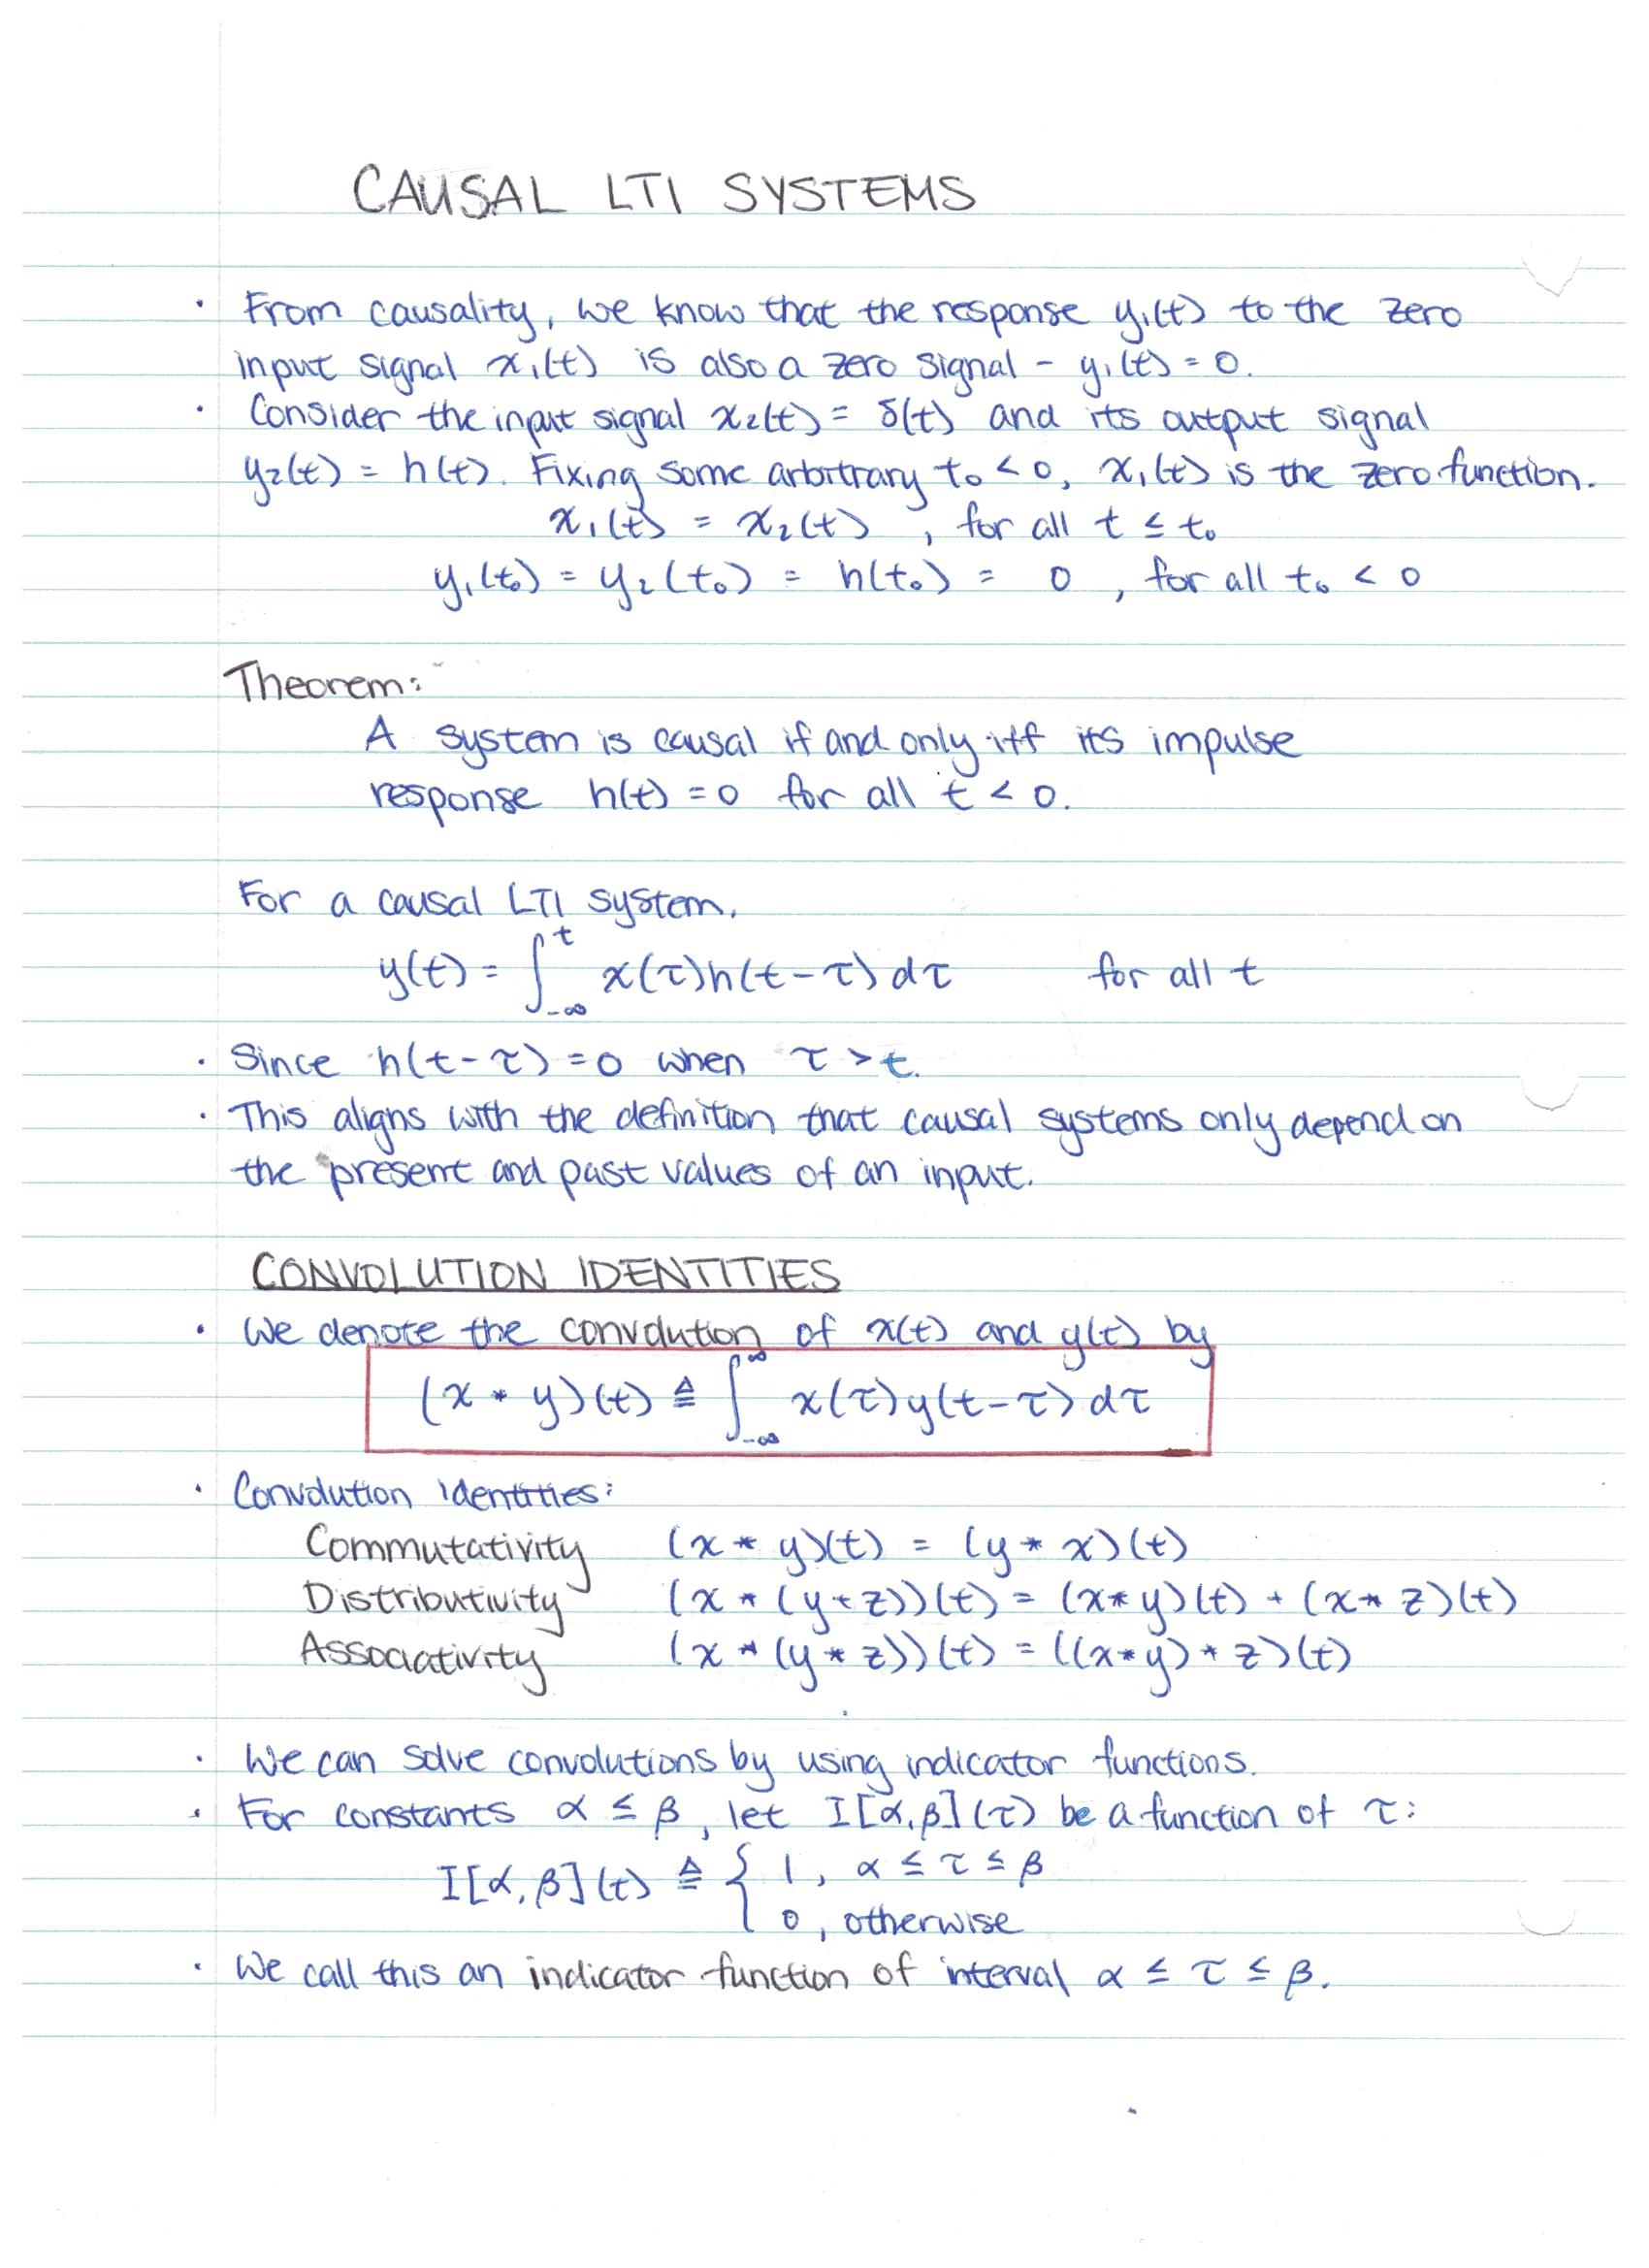 CAUSAL LTI SYSTEMS
• From causality, we know that the response y₁(t) to the zero
input signal x₁(t) is also a zero signal - y₁(t) = 0.
• Consider the input signal x₂(t) = δ(t) and its output signal
y₂(t) = h(t). Fixing some arbitrary t₀ < 0, x₁(t) is the zero function.
x₁(t) = x₂(t) , for all t ≤ t₀
y₁(t₀) = y₂(t₀) = h(t₀) = 0 , for all t₀ < 0
Theorem:
A system is causal if and only iff its impulse
response h(t) = 0 for all t < 0.
For a causal LTI system,
y(t) = ∫_{-∞}^{t} x(τ)h(t-τ) dτ for all t
• Since h(t-τ) = 0 when τ > t.
• This aligns with the definition that causal systems only depend on
the present and past values of an input.
CONVOLUTION IDENTITIES
• We denote the convolution of x(t) and y(t) by
(x * y)(t) ≜ ∫_{-∞}^{∞} x(τ)y(t-τ) dτ
• Convolution identities:
Commutativity (x * y)(t) = (y * x)(t)
Distributivity (x * (y+z))(t) = (x*y)(t) + (x* z)(t)
Associativity (x * (y * z))(t) = ((x*y) * z)(t)
• We can solve convolutions by using indicator functions.
• For constants α ≤ β, let I[α,β](τ) be a function of τ:
I[α,β](t) ≜ { 1, α ≤ τ ≤ β
0, otherwise
• We call this an indicator function of interval α ≤ τ ≤ β.